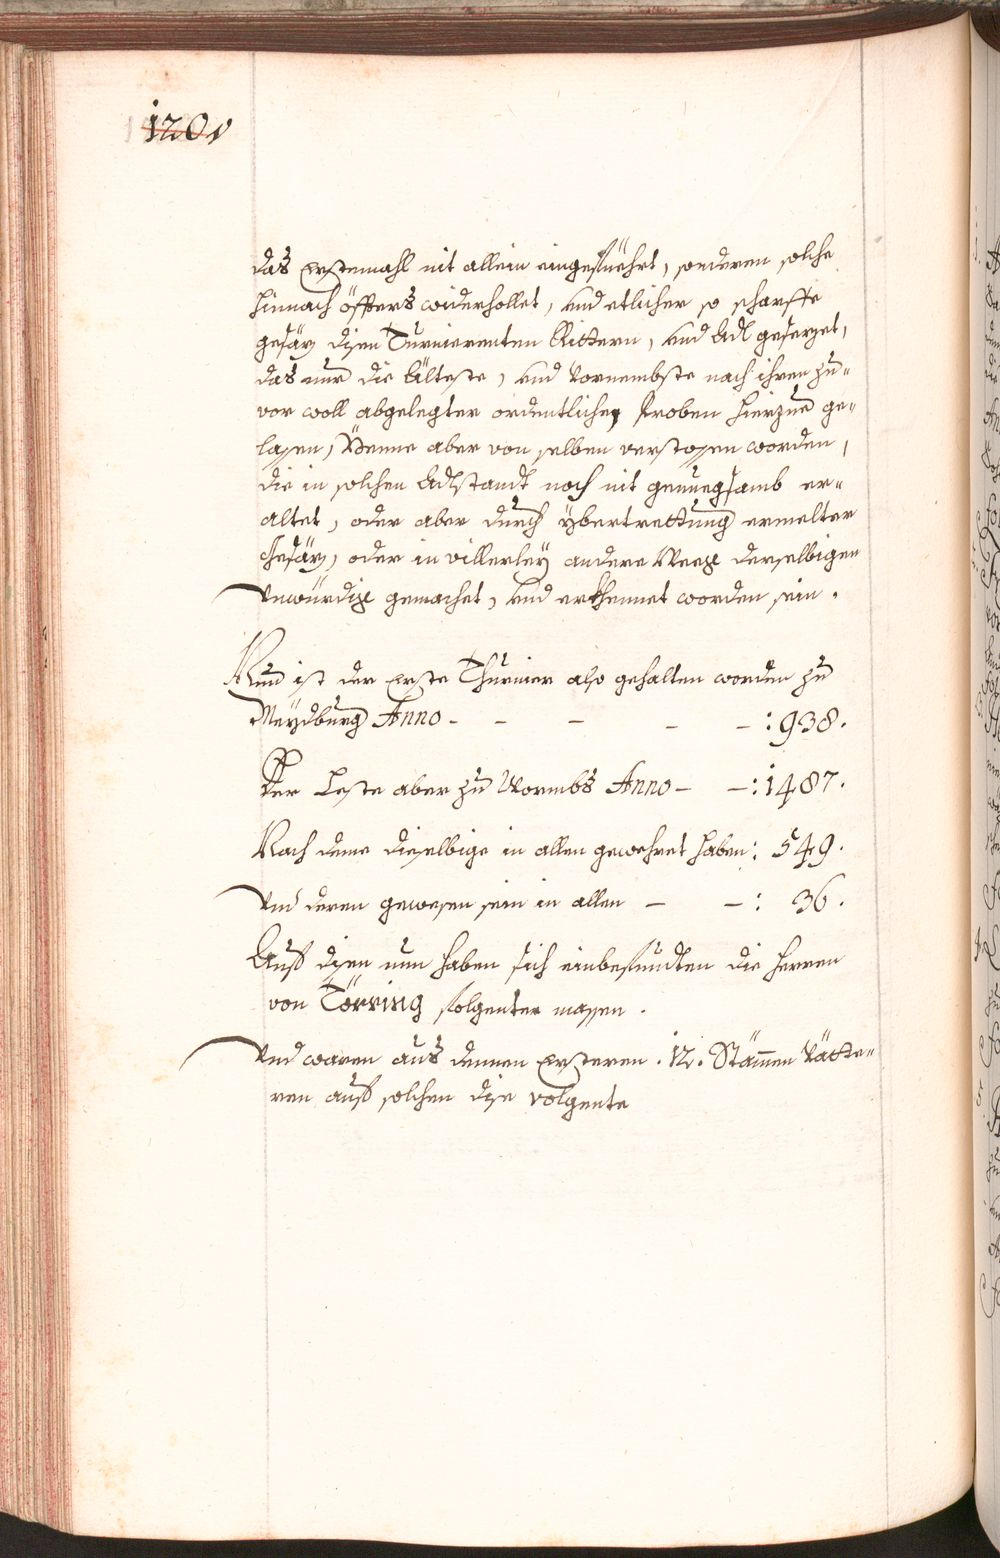 120v
das Erstemahl nit allein eingefüehrt, sonderen solche
hinnach öffters widerhollet, und etlicher so scharffe
gesäz disen Turnierenten Rittern, und Adl gesezet,
das nur die Älteste, und Vornembste nach ihren zu-
vor woll abgelegter ordentlicher Proben hierzue ge-
lassen, Jenne aber von selben verstossen worden,
die in solchen Adlstandt noch nit genuegsamb er-
altet, oder aber durch ybertrettung ermelter
Gesäz, oder in villerley andere Weege derselbigen
Unwürdig gemachet, und erkhennet worden sein.
Nun ist der Erste Thurnier also gehalten worden zu
Meydburg Anno - - - - - : 938.
Der Leste aber zu Wormbs Anno - - : 1487.
Nach deme dieselbige in allen gewehret haben: 549.
Und deren gewesen sein in allen - - : 36.
Auff disen nun haben sich einbefundten die Herren
von Törring folgenter massen.
Und waren aus dennen Ersteren .12. Stämmen Vätte-
ren auff solchen dise volgente